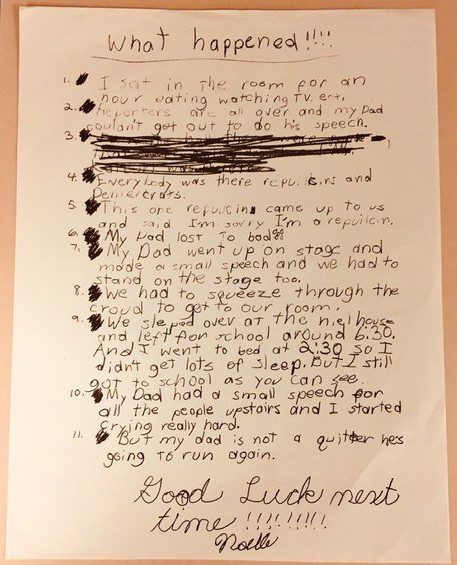 What happened!!!!
1. I sat in the room for an
hour eating watching TV. ect,
2. Reporters are all over and my Dad
couldn't get out to do his speech.
3.
4. Everybody was there and
Demercrats.
5. This one came up to us
and said I'm sorry I'm a
6. My Dad lost to bad
7. My Dad went up on stage and
made a small speech and we had to
stand on the stage too.
8. We had to squeeze through the
croud to get to our room.
9. We over at the house
and left for school around 6:30.
And I went to bed at 2:30 so I
didn't get lots of sleep. But I still
got to school as you can see.
10. My Dad had a small speech for
all the people upstairs and I started
crying really hard.
11. But my dad is not a quitter he's
going to run again.
Good Luck next
time !!!!!!!!!
Noelle